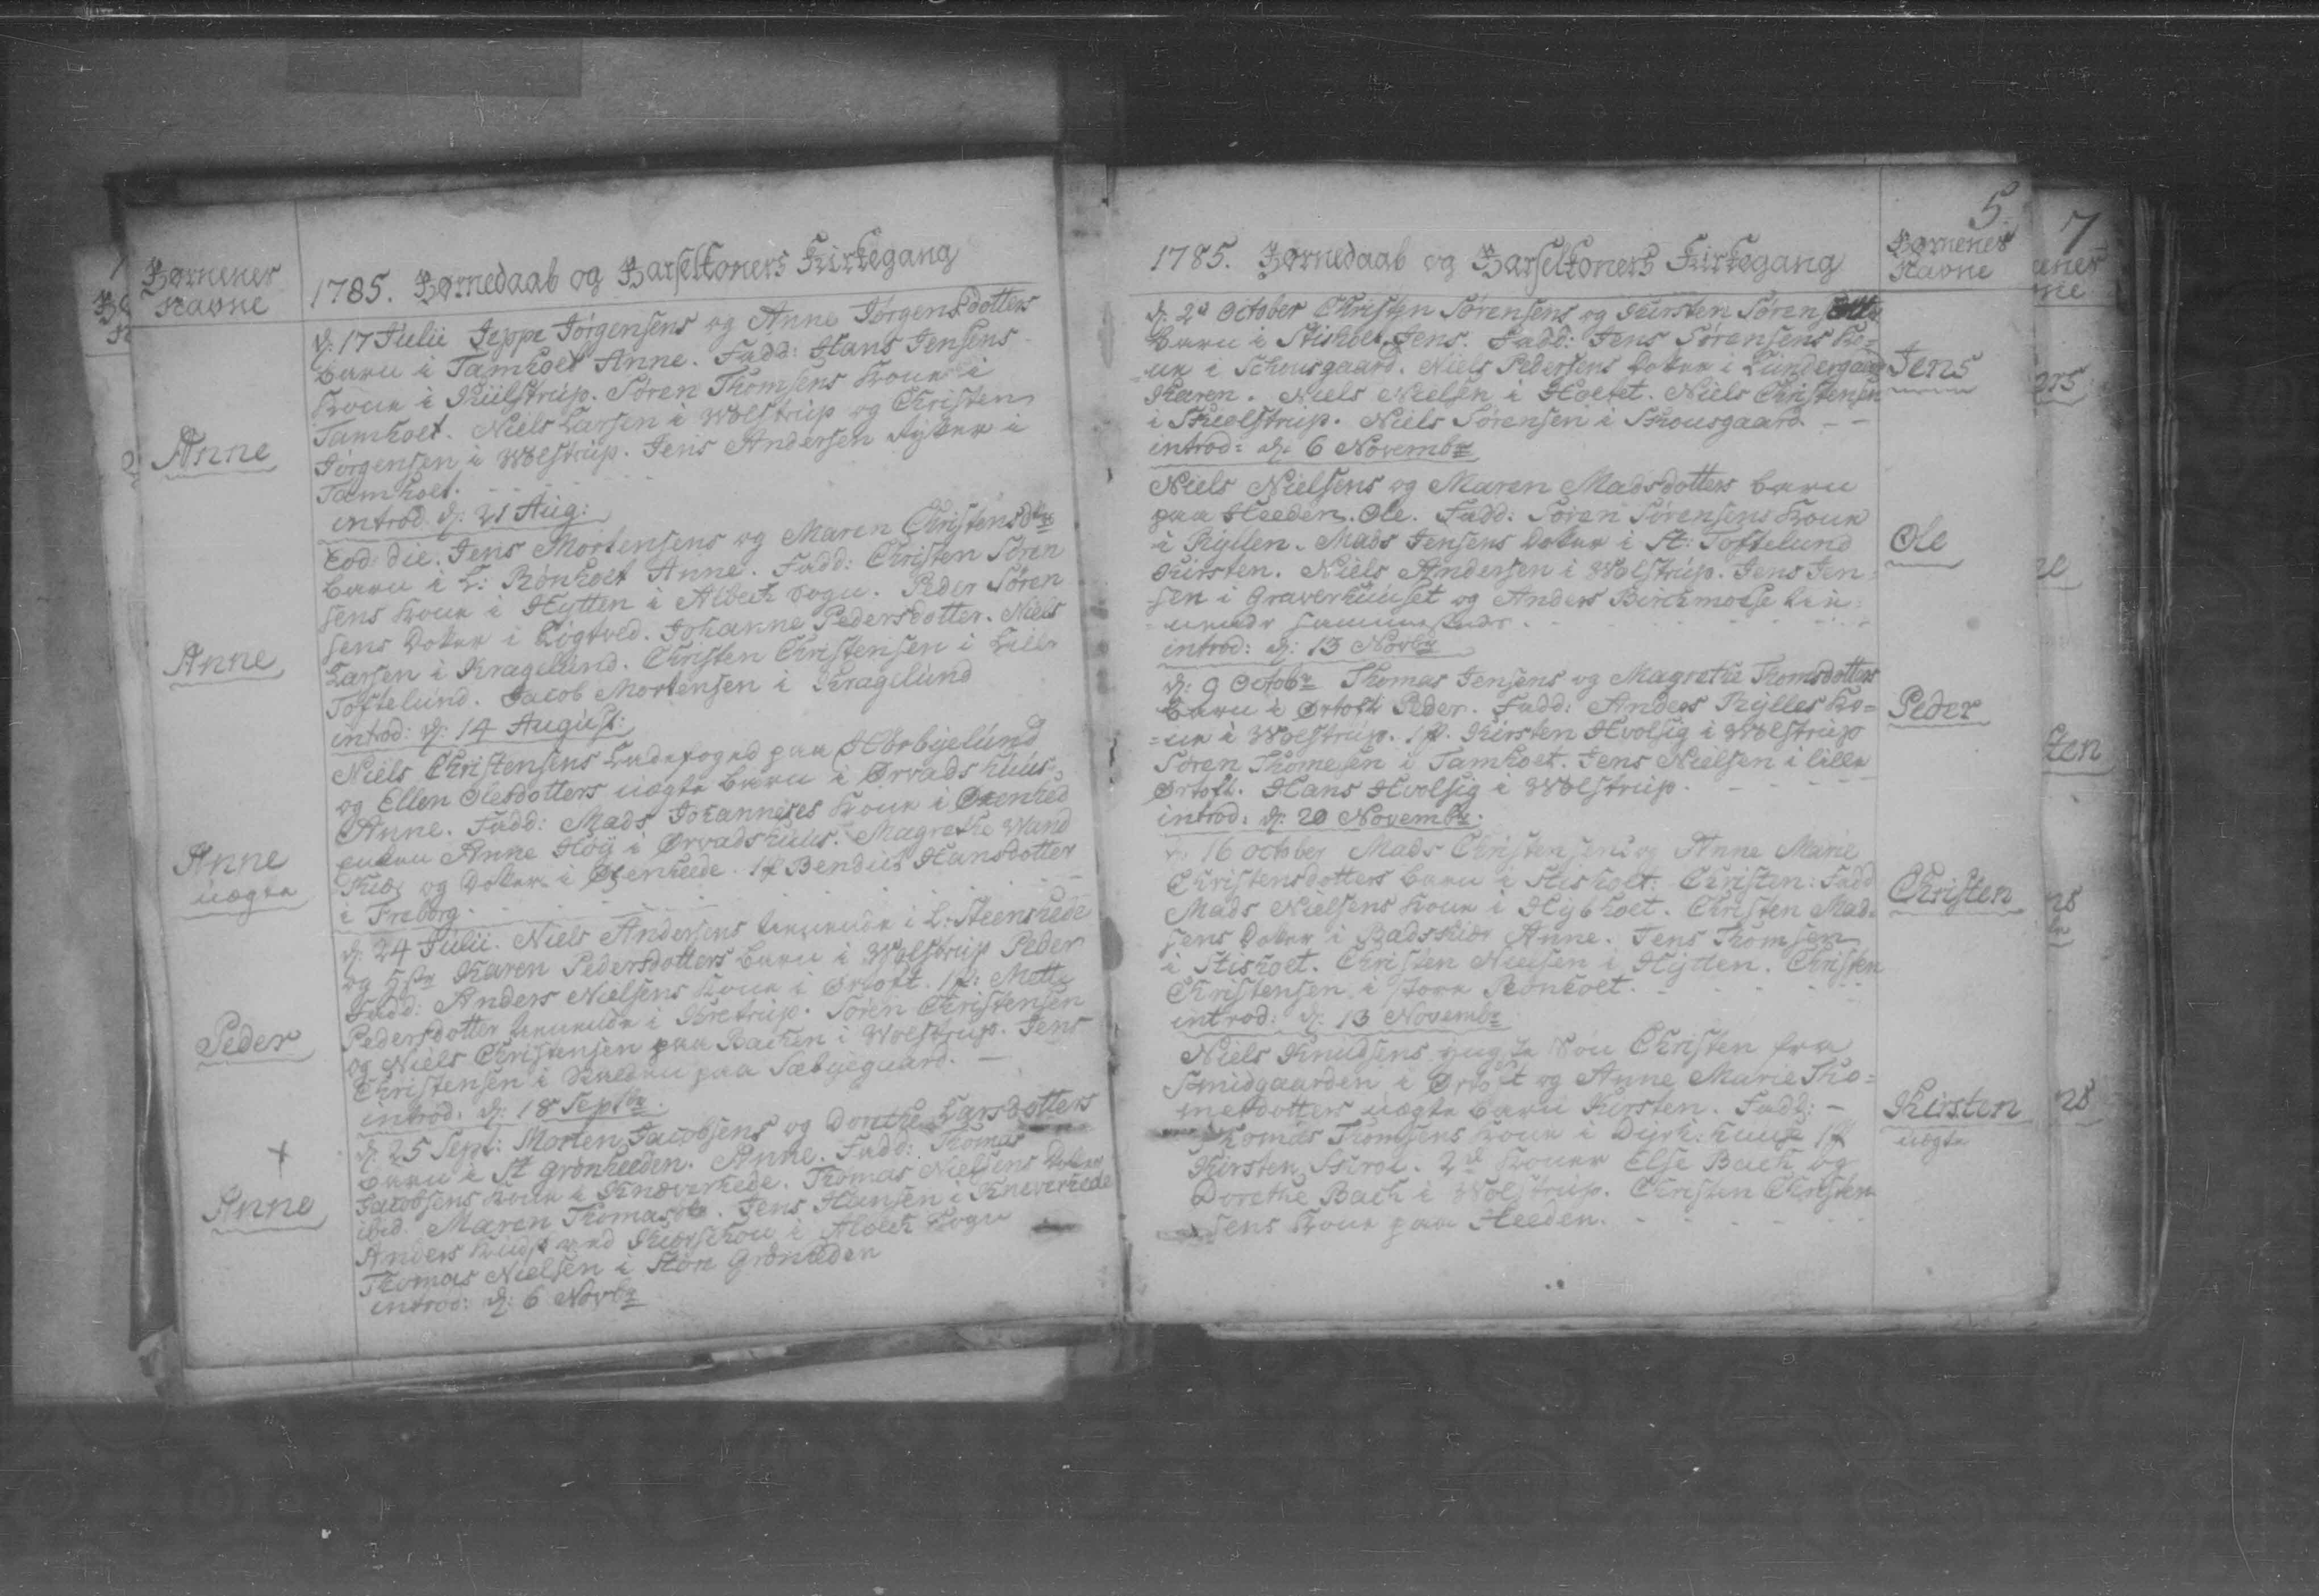 Børnenes
Navne
1785. Børnedaab og Barselkoners Kirkegang
d: 17 Julii Jeppe Jørgensens og Anne Jørgensdotters
barn i Tamholt Anne. Fadd: Hans Jensens
Kone i Kiilstrup. Søren Thomsens Kone i
Tamholt. Niels Larsen i Wolstrup og Christen
Anne
Jørgensen i Wolstrup. Jens Andersen i
Tamholt.
introd d: 21 Aug:
Eod: die. Jens Mortensens og Maren Christensdtrs
barn i L: Rønholt Anne. Fadd: Christen Søren
sens Kone i Hytten i Albech Sogn. Peder Søren
sens Dotter i Løgtved. Johanne Pedersdotter. Niels
Anne
Larsen i Kragelund. Christen Christensen i Lille
Toftelund. Jacob Mortensen i Kragelund
introd: d: 14 August:
Niels Christensens Ladefoged paa Hørbyelund
og Ellen Olesdotters uægte barn i Ørvadshuus
Anne. Fadd: Mads Johanneses Kone i
Anne
uægte
Anne Høy i Ørvadshuus. Magrethe Wand
og Dotter i 1 p Bendits Hansdotter
i Freborg.
d: 24 Julii. Niels Andersens tienende i L: Steenshede
og Karen Pedersdotters barn i Wolstrup Peder
Fadd: Anders Nielsens Kone i Ørtoft. 1 p: Mette
Peder
Pedersdotter tienende i Søren Christensen
og Niels Christensen paa Bachen i Wolstrup. Jens
Christensen i paa Sæbyegaard.
introd: d: 18 Septbr.
d: 25 Sept: Morten Jacobsens og Dorthe Larsdotters
barn i St grønheeden. Anne. Fadd: Thomas
Jacobsens Kone i Knæverhede. Thomas Nielsens Dotter
Anne
ibid. Maren Thomasdtr. Jens Hansen i Kneverhede
Anders i Albech Sogn
Thomas Nielsen i Store Grønheden
introd: d: 6 Novbr
5
Børnenes
Navne
1785. Børnedaab og Barselkoners Kirkegang
d: 2d October Christen Sørensens og Kirsten
barn i Stisholt Jens. Fadd: Jens Sørensens Ko=
=ne i Schousgaard. Niels Pedersens Dotter i Lundergaard
Jens
Karen. Niels Nielsen i Holtet. Niels Christensen
i Niels Sørensen i Skousgaard. - -
introd: d: 6 Novembr
Niels Nielsens og Maren Madsdotters barn
paa Heeden. Ole. Fadd: Søren Sørensens Kone
i Ryllen. Mads Jensens Dotter i St: Toftelund
Ole
Kirsten. Niels Andersen i Wolstrup. Jens Jen=
sen i Graverhuuset og Anders Birchmose tie=
=nende sammesteds.
introd: d: 13 Novbr
d: 9 Octobr Thomas Jensens og Magrethe Thomsdotters
barn i Ørtoft Peder. Fadd: Anders Rylles Ko=
Peder
=ne i Wolstrup. 1 p. Kirsten Hvolsig i Wolstrup
Søren Thomesen i Tamholt. Jens Nielsen i lille
Ørtoft. Hans Hvolsig i Wolstrup.
introd: d: 20 Novembr.
d: 16 october Mads Christensens og Anne Marie
Christensdotters barn i Stisholt: Christen: Fadd
Mads Nielsens Kone i Hybholt. Christen Mad=
Christen
sens Dotter i Badskiær Anne. Jens Thomsen
i Stisholt. Christen Nielsen i Hytten. Christen
Christensen i store Rønholt.
introd: d: 13 Novembr
Niels Knudsens Søn Christen fra
Smidgaarden i Ørtoft og Anne Marie Tho=
mesdotters uægte barn Kirsten. Fadd: -
Kirsten
uægte
Thomas Thomsens Kone i 1 p
Kirsten 2d Koner Else Bach og
Dorethe Bach i Wolstrup. Christen Christen
sens Kone paa Heeden.
7